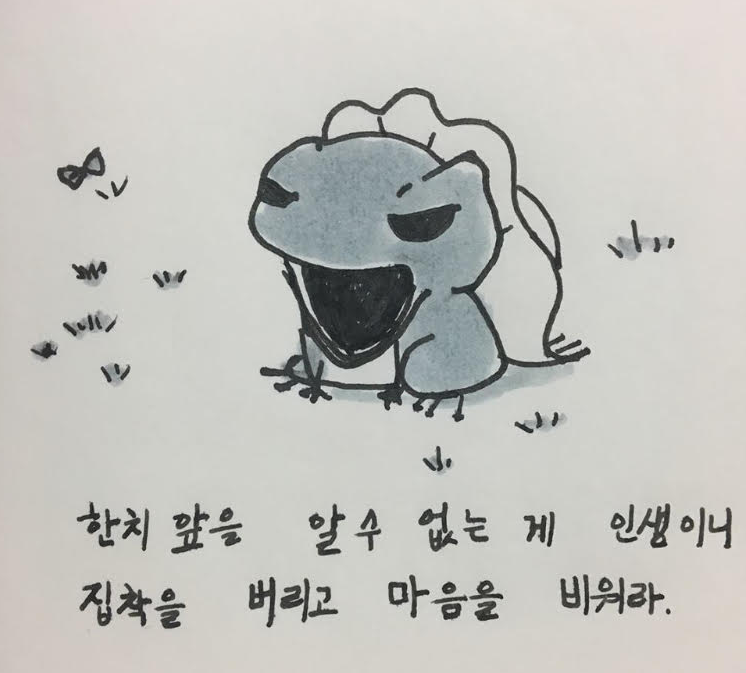 한치 앞을 알 수 없는 게 인생이니
집착을 버리고 마음을 비워라.